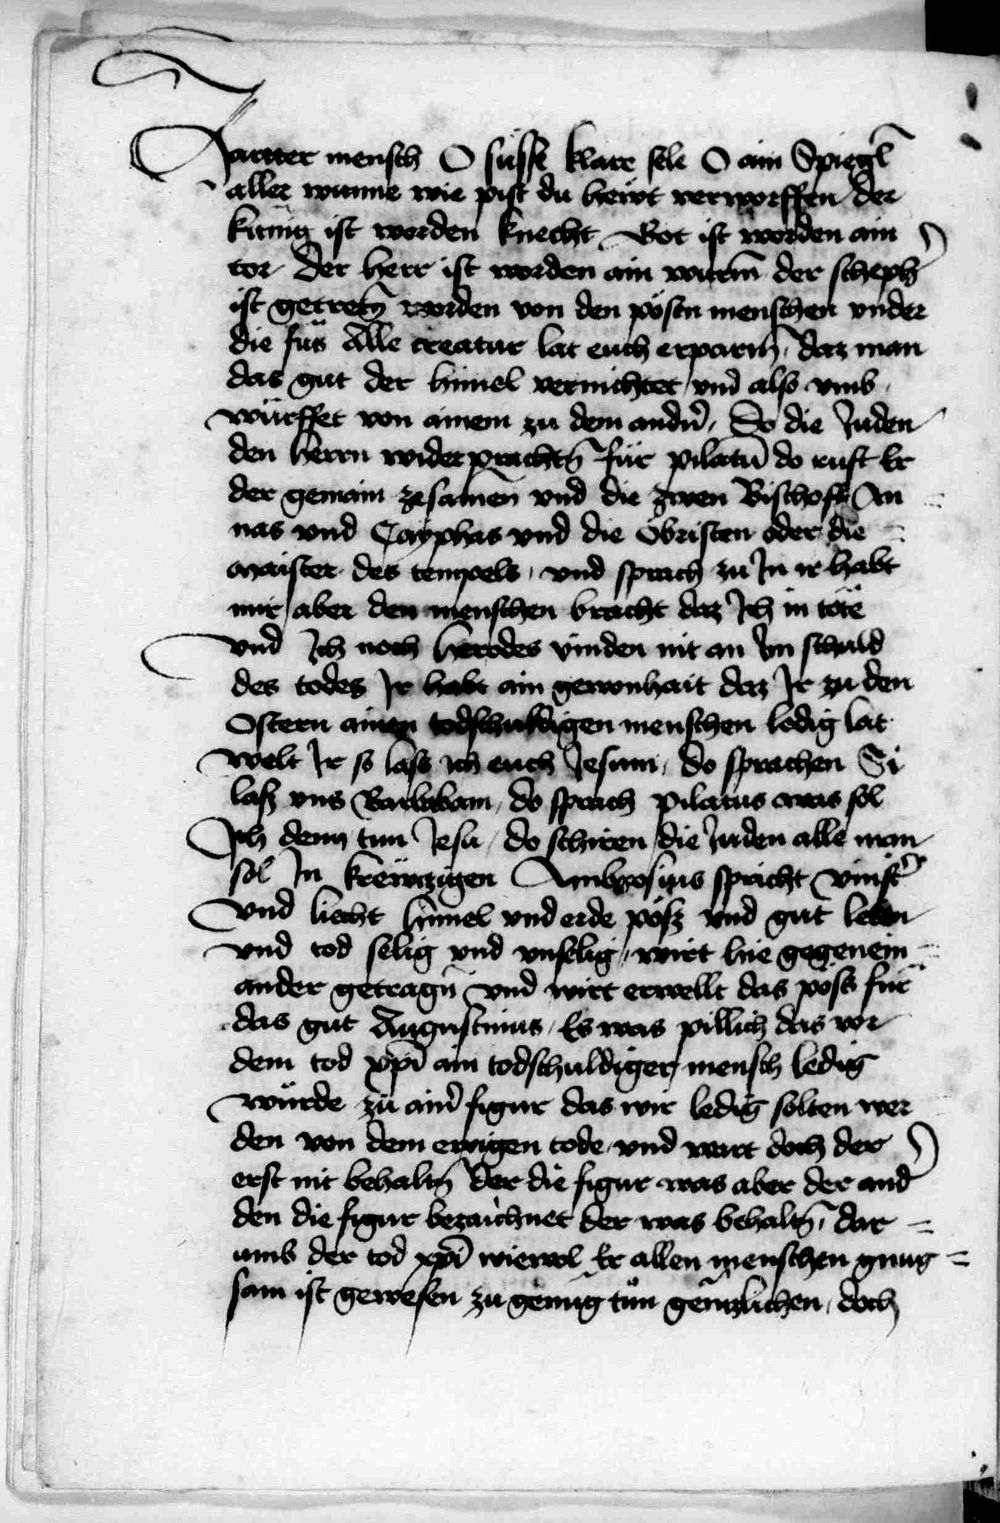 Zartter mensch O süsse klare sele O ain Spiegl̄
aller wunne wie pist du hewt verworffen der
künig ist worden knecht Got ist worden ain
tor der herr ist worden ain wurm̄ der scheph̄
ist getretn̄ worden von den pösen menschen vnder
die füs Alle creatur lat euch erparm̄ daz man
das gut der himel vernichtet vnd also vmb
würffet von ainem zu dem andn̄ Do die Juden
den herrn widerprachtn̄ für pilatū do ruft Er
der gemain zesamen vnd die zwen Bischoff An
nas vnd Cayphas vnd die öbristen oder die
maister des tempels vnd sprach zu In ir habt
mir aber den menschen bracht daz Ich in töte
vnd Ich noch herodes vinden nit an Im schuld
des todes Ir habt ain gewonhait daz Ir zu den
Ostern ainen todschuldigen menschen ledig lat
welt Ir so lass ich euch Jesum do sprachen Si
lasz vns Barabbam do sprach pilatus was sol
Ich denn tun Jesu do schiren die Juden alle man
sol In krewczigen Ambrosius spricht vinst̄
vnd liecht himel vnd erde pösz vnd gut leben
vnd tod selig vnd vnselig wirt hie gegenein
ander getragn̄ vnd wirt erwellt das pöss für
das gut Augustinus Es was pillich das vor
dem tod xp̄i ain todschuldiger mensch ledig
würde zu ain̄ figur das wir ledig solten wer
den von dem ewigen tode vnd wart doch der
erst nit behaltn̄ der die figur was aber der and̄
den die figur bezaichnet der was behaltn̄ dar
umb der tod xp̄i wiewol Er allen menschen gnug
sam ist gewesen zu genug tün genczlichen doch